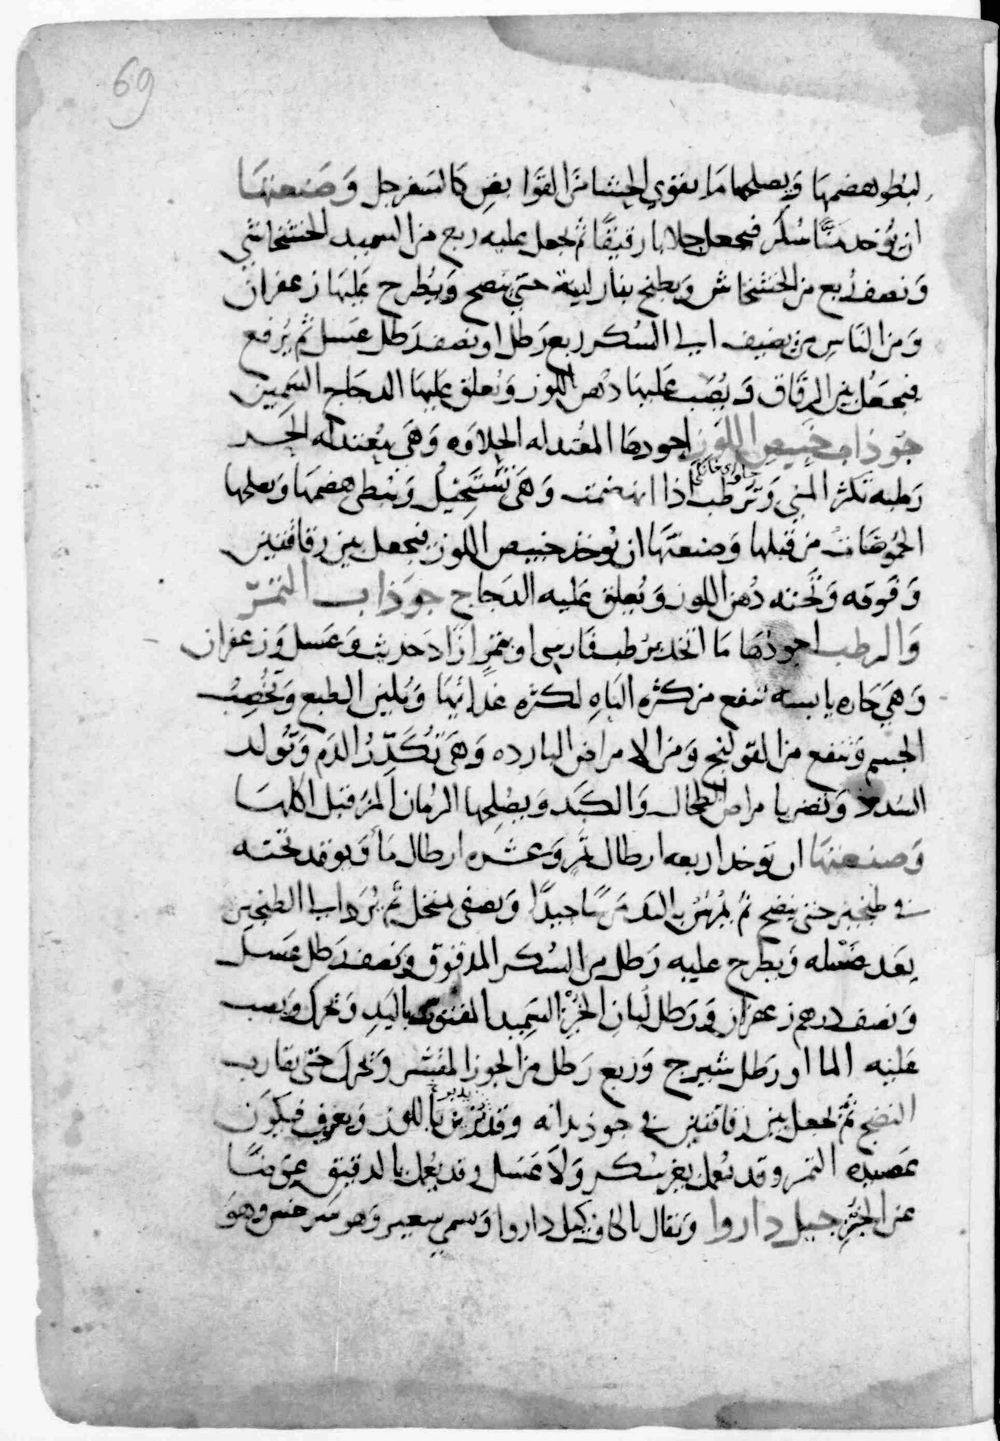 69
لبطو هضمها ويصلحها ما يقوي الحشا من القوابض كالسفرجل وصنعتها
ان يؤخد منّا سكر فيجعل جلابا رقيقًا ثم يجعل عليه ربع من السميد الخشخاشي
ونصف ربع من الخشخاش ويطبخ بنار لينة حتى ينضج ويُطرح عليها زعفران
ومن الناس من يضيف الى السكر ربع رطل او نصف رطل عسل ثم يُرفع
فيجعل بين الرقاق ويُصب عليها دهن اللوز وتعلق عليها الدجاج السمين
جوذاب خبيص اللوز اجودها المعتدله الحلاوه وهي معتدله الحر
رطبه تكثر المني وترطب اذا انهضمت وهي تستحيل وتبطي هضمها ويصلحها
الحموضات من قبلها وصنعتها ان يوخذ خبيص اللوز فيجعل بين رقاقتين
وفوقه وتحته دهن اللوز ويُعلق عليه الدجاج جوذاب التمر
والرطب اجودها ما اتخد من رطب فارسي او تمر ازاد حديث وعسل وزعفران
وهي حاره يابسه تنفع من كثره الباه لكثره غدائها وتلين الطبع وتخصب
الجسم وتنفع من القولنج ومن الامراض البارده وهي تُكدّر الدم وتولد
السدد وتضر بامراض الطحال والكبد ويصلحها الرمان المز قبل اكلها
وصنعتها ان توخد اربعه ارطال تمر وعشره ارطال ما ويوقد تحته
في طنجير حتى ينضج ثم يمرس باليد مرسًا جيدًا ويصفى بمنخل ثم يُرد الى الطنجير
بعد غسله ويطرح عليه رطل من السكر المدقوق ونصف رطل عسل
ونصف درهم زعفران ورطل لباب الخبز السميد المفتوت باليد وتحرك ويصب
عليه الما او رطل شيرج وربع رطل من الجوز المقشر وتحرك حتى يقارب
النضج ثم يجعل بين رقاقتين في جوذبدانه وقد تزين باللوز ويغرف فيكون
عصيده التمر وقد تعمل بغير سكر ولا عسل وقد يعمل بالدقيق عوضًا
عن الخبز جيل داروا ويقال بالكاف كيل داروا وسمي سعير وهو سرخس وهو